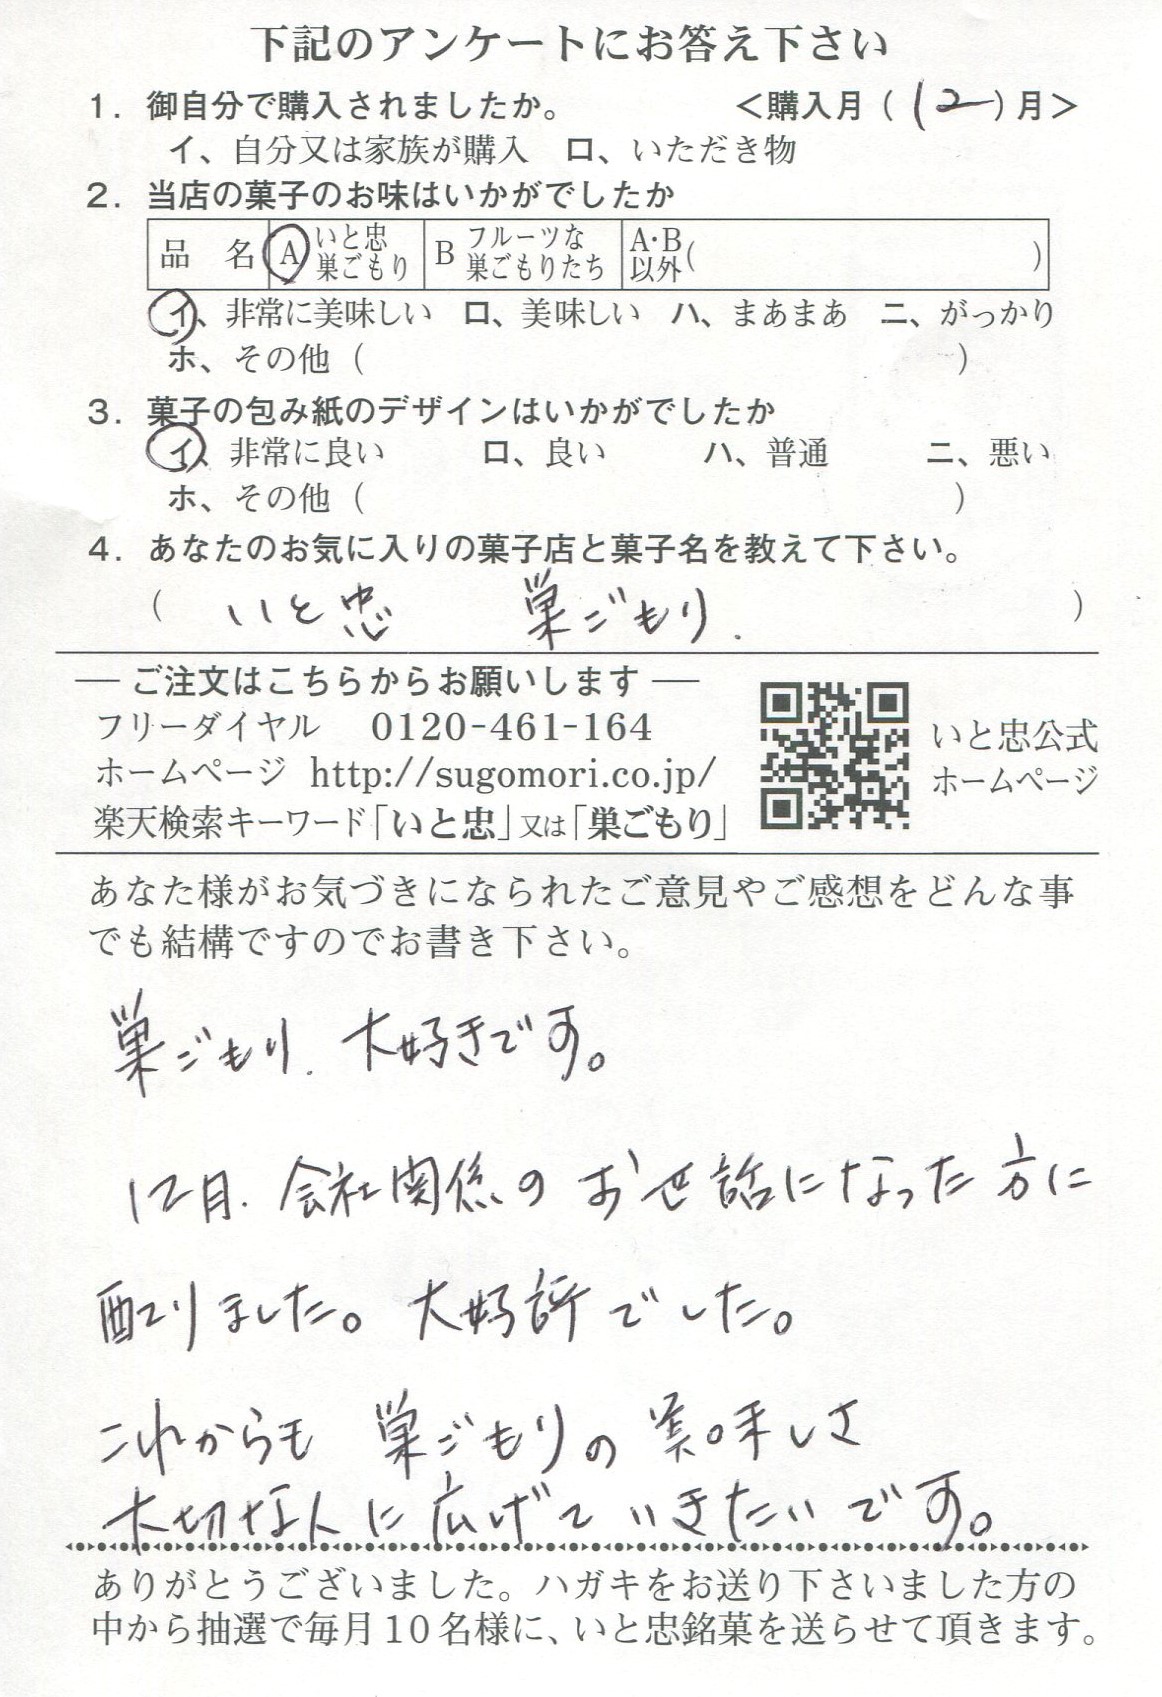 下記のアンケートにお答え下さい
1. 御自分で購入されましたか。 <購入月 ( 12 ) 月>
イ、自分又は家族が購入 ロ、いただき物
2. 当店の菓子のお味はいかがでしたか
品 名 A いと忠 巣ごもり B フルーツな 巣ごもりたち A・B 以外( )
イ、非常に美味しい ロ、美味しい ハ、まあまあ ニ、がっかり
ホ、その他 ( )
3. 菓子の包み紙のデザインはいかがでしたか
イ、非常に良い ロ、良い ハ、普通 ニ、悪い
ホ、その他 ( )
4. あなたのお気に入りの菓子店と菓子名を教えて下さい。
( いと忠 巣ごもり. )
― ご注文はこちらからお願いします ―
フリーダイヤル 0120-461-164
ホームページ http://sugomori.co.jp/
楽天検索キーワード「いと忠」又は「巣ごもり」
いと忠公式
ホームページ
あなた様がお気づきになられたご意見やご感想をどんな事
でも結構ですのでお書き下さい。
巣ごもり. 大好きです。
12月. 会社関係の お世話になった方に
配りました。大好評でした。
これからも 巣ごもりの美味しさ
大切な人に広げていきたいです。
ありがとうございました。ハガキをお送り下さいました方の
中から抽選で毎月10名様に、いと忠銘菓を送らせて頂きます。